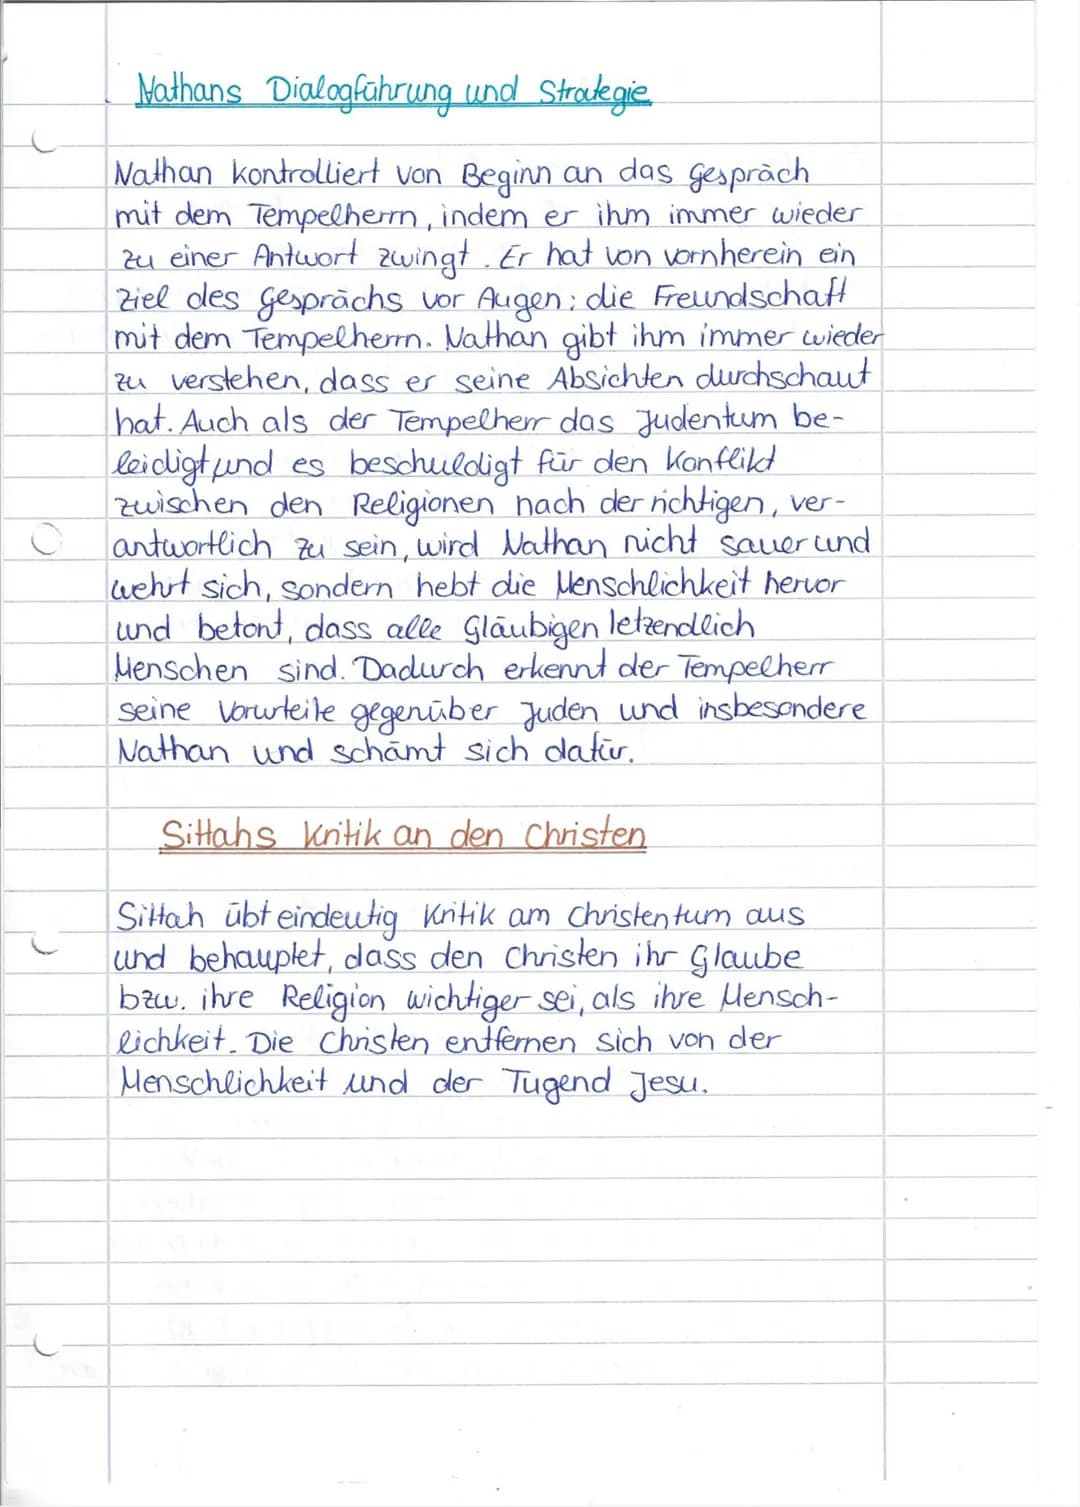 Nathans Dialogführung und Strategie
Nathan kontrolliert von Beginn an das Gespräch
mit dem Tempelherrn, indem er ihm immer wieder
zu einer Antwort zwingt. Er hat von vornherein ein
Ziel des Gesprächs vor Augen: die Freundschaft
mit dem Tempelherrn. Nathan gibt ihm immer wieder
zu verstehen, dass er seine Absichten durchschaut
hat. Auch als der Tempelherr das Judentum be-
leidigt und es beschuldigt für den Konflikt
zwischen den Religionen nach der richtigen, ver-
antwortlich zu sein, wird Nathan nicht sauer und
wehrt sich, sondern hebt die Menschlichkeit hervor
und betont, dass alle Gläubigen letzendlich
Menschen sind. Dadurch erkennt der Tempelherr
seine Vorurteile gegenüber Juden und insbesondere
Nathan und schämt sich dafür.
Sittahs Kritik an den Christen
Sittah übt eindeutig Kritik am Christentum aus
und behauptet, dass den Christen ihr Glaube
bzw. ihre Religion wichtiger sei, als ihre Mensch-
lichkeit. Die Christen entfernen sich von der
Menschlichkeit und der Tugend Jesu.